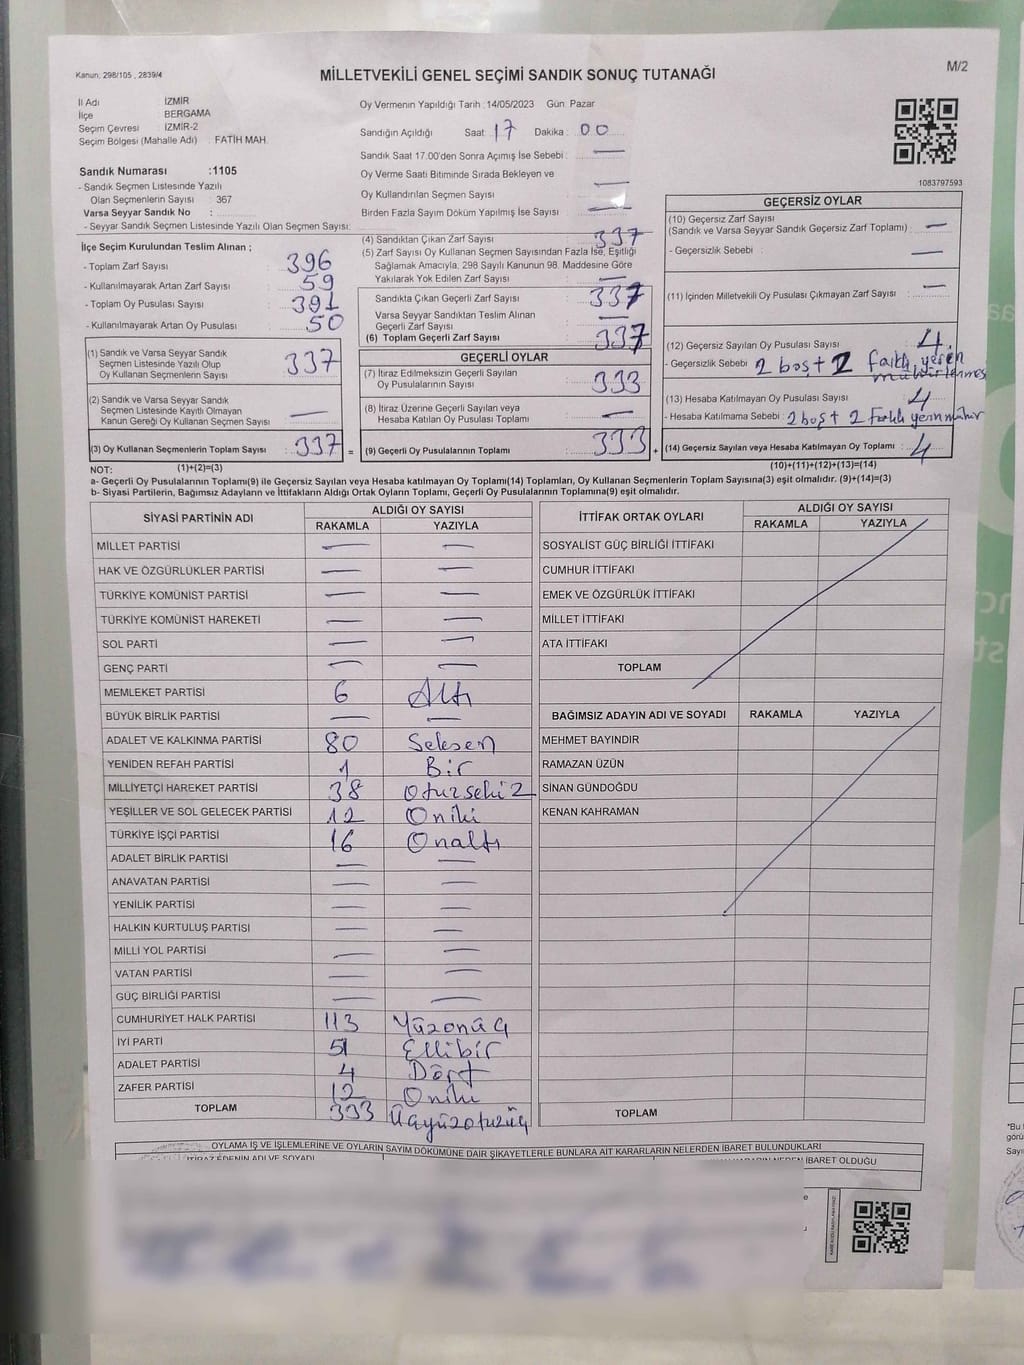 Kanun; 298/105 , 2839/4
MİLLETVEKİLİ GENEL SEÇİMİ SANDIK SONUÇ TUTANAĞI
M/2
İl Adı : İZMİR
İlçe : BERGAMA
Seçim Çevresi : İZMİR-2
Seçim Bölgesi (Mahalle Adı) : FATİH MAH.
Oy Vermenin Yapıldığı Tarih : 14/05/2023 Gün: Pazar
Sandığın Açıldığı Saat : 17 Dakika : 00
Sandık Saat 17.00'den Sonra Açımış İse Sebebi : —
Oy Verme Saati Bitiminde Sırada Bekleyen ve
Oy Kullandırılan Seçmen Sayısı : —
Birden Fazla Sayım Döküm Yapılmış İse Sayısı : —
1083797593
Sandık Numarası :1105
- Sandık Seçmen Listesinde Yazılı
Olan Seçmenlerin Sayısı : 367
Varsa Seyyar Sandık No :
- Seyyar Sandık Seçmen Listesinde Yazılı Olan Seçmen Sayısı:
İlçe Seçim Kurulundan Teslim Alınan ;
- Toplam Zarf Sayısı : 396
- Kullanılmayarak Artan Zarf Sayısı : 59
- Toplam Oy Pusulası Sayısı : 391
- Kullanılmayarak Artan Oy Pusulası : 50
(1) Sandık ve Varsa Seyyar Sandık
Seçmen Listesinde Yazılı Olup
Oy Kullanan Seçmenlerin Sayısı : 337
(2) Sandık ve Varsa Seyyar Sandık
Seçmen Listesinde Kayıtlı Olmayan
Kanun Gereği Oy Kullanan Seçmen Sayısı : —
(3) Oy Kullanan Seçmenlerin Toplam Sayısı : 337 =
(4) Sandıktan Çıkan Zarf Sayısı : 337
(5) Zarf Sayısı Oy Kullanan Seçmen Sayısından Fazla İse, Eşitliği
Sağlamak Amacıyla; 298 Sayılı Kanunun 98. Maddesine Göre
Yakılarak Yok Edilen Zarf Sayısı : —
Sandıkta Çıkan Geçerli Zarf Sayısı : 337
Varsa Seyyar Sandıktan Teslim Alınan
Geçerli Zarf Sayısı : —
(6) Toplam Geçerli Zarf Sayısı : 337
GEÇERLİ OYLAR
(7) İtiraz Edilmeksizin Geçerli Sayılan
Oy Pusulalarının Sayısı : 333
(8) İtiraz Üzerine Geçerli Sayılan veya
Hesaba Katılan Oy Pusulası Toplamı : —
(9) Geçerli Oy Pusulalarının Toplamı : 333 +
GEÇERSİZ OYLAR
(10) Geçersiz Zarf Sayısı
(Sandık ve Varsa Seyyar Sandık Geçersiz Zarf Toplamı) : —
- Geçersizlik Sebebi : —
(11) İçinden Milletvekili Oy Pusulası Çıkmayan Zarf Sayısı : —
(12) Geçersiz Sayılan Oy Pusulası Sayısı : 4
- Geçersizlik Sebebi : 2 boş + 2 farklı yerin
mühürlenmesi
(13) Hesaba Katılmayan Oy Pusulası Sayısı : 4
- Hesaba Katılmama Sebebi : 2 boş + 2 farklı yerin mühür
(14) Geçersiz Sayılan veya Hesaba Katılmayan Oy Toplamı : 4
NOT: (1)+(2)=(3)
(10)+(11)+(12)+(13)=(14)
a- Geçerli Oy Pusulalarının Toplamı(9) ile Geçersiz Sayılan veya Hesaba katılmayan Oy Toplamı(14) Toplamları, Oy Kullanan Seçmenlerin Toplam Sayısına(3) eşit olmalıdır. (9)+(14)=(3)
b- Siyasi Partilerin, Bağımsız Adayların ve İttifakların Aldığı Ortak Oyların Toplamı, Geçerli Oy Pusulalarının Toplamına(9) eşit olmalıdır.
SİYASİ PARTİNİN ADI
ALDIĞI OY SAYISI
RAKAMLA YAZIYLA
MİLLET PARTİSİ — —
HAK VE ÖZGÜRLÜKLER PARTİSİ — —
TÜRKİYE KOMÜNİST PARTİSİ — —
TÜRKİYE KOMÜNİST HAREKETİ — —
SOL PARTİ — —
GENÇ PARTİ — —
MEMLEKET PARTİSİ 6 Altı
BÜYÜK BİRLİK PARTİSİ — —
ADALET VE KALKINMA PARTİSİ 80 Seksen
YENİDEN REFAH PARTİSİ 1 Bir
MİLLİYETÇİ HAREKET PARTİSİ 38 Otuzsekiz
YEŞİLLER VE SOL GELECEK PARTİSİ 12 Oniki
TÜRKİYE İŞÇİ PARTİSİ 16 Onaltı
ADALET BİRLİK PARTİSİ — —
ANAVATAN PARTİSİ — —
YENİLİK PARTİSİ — —
HALKIN KURTULUŞ PARTİSİ — —
MİLLİ YOL PARTİSİ — —
VATAN PARTİSİ — —
GÜÇ BİRLİĞİ PARTİSİ — —
CUMHURİYET HALK PARTİSİ 113 Yüzonüç
İYİ PARTİ 51 Ellibir
ADALET PARTİSİ 4 Dört
ZAFER PARTİSİ 12 Oniki
TOPLAM 333 Üçyüzotuzüç
İTTİFAK ORTAK OYLARI
ALDIĞI OY SAYISI
RAKAMLA YAZIYLA
SOSYALİST GÜÇ BİRLİĞİ İTTİFAKI
CUMHUR İTTİFAKI
EMEK VE ÖZGÜRLÜK İTTİFAKI
MİLLET İTTİFAKI
ATA İTTİFAKI
TOPLAM
BAĞIMSIZ ADAYIN ADI VE SOYADI RAKAMLA YAZIYLA
MEHMET BAYINDIR
RAMAZAN ÜZÜN
SİNAN GÜNDOĞDU
KENAN KAHRAMAN
TOPLAM
OYLAMA İŞ VE İŞLEMLERİNE VE OYLARIN SAYIM DÖKÜMÜNE DAİR ŞİKAYETLERLE BUNLARA AİT KARARLARIN NELERDEN İBARET BULUNDUKLARI
İTİRAZ EDENİN ADI VE SOYADI
İBARET OLDUĞU